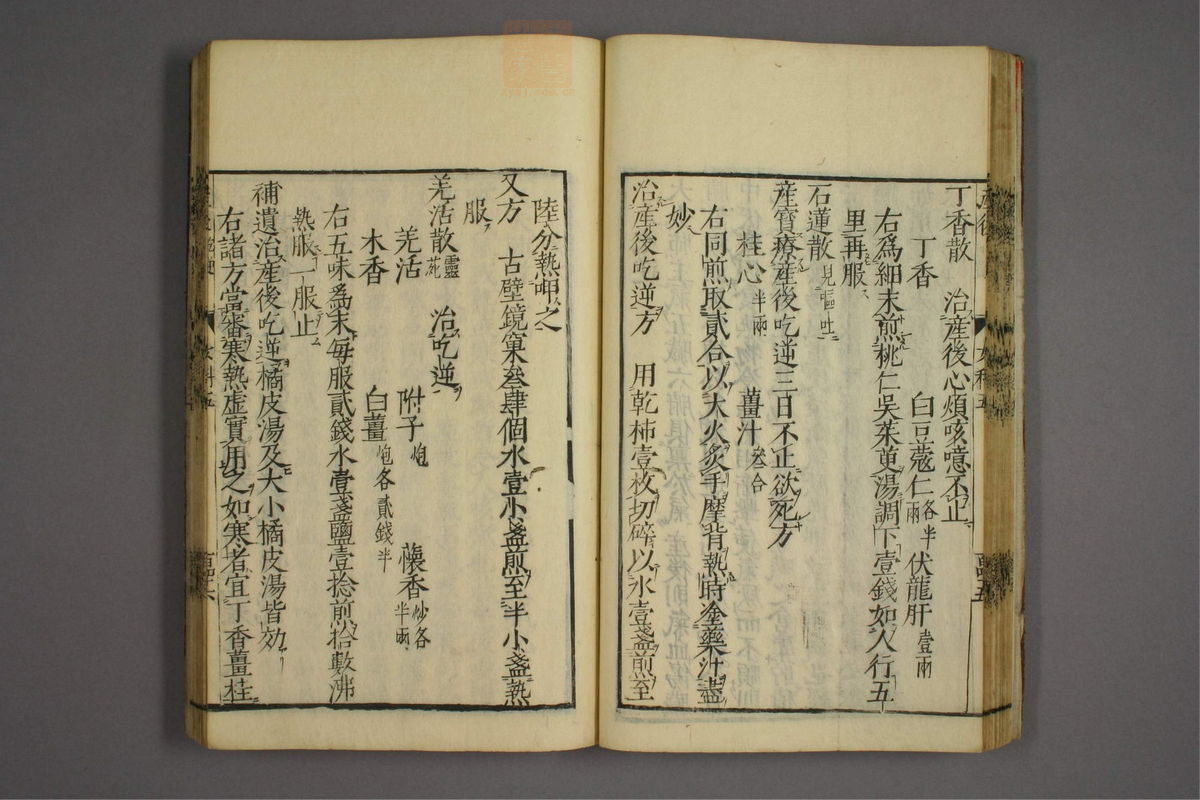 丁香散　治產後心煩咳噫不止
丁香　白豆蔻仁各半兩　伏龍肝壹兩
右爲細末煎桃仁吳茱萸湯調下壹錢如人行五
里再服
石蓮散見嘔吐
產寶療產後吃逆三日不止欲死方
桂心半兩　薑汁叁合
右同煎取貳合以大火炙手摩背熱時塗藥汁盡
妙
治產後吃逆方　用乾柿壹枚切碎以水壹盞煎至
陸分熱呷之
又方　古壁鏡窠叁肆個水壹小盞煎至半小盞熱
服
羌活散靈苑　治吃逆
羌活　附子炮　懷香炒各半兩
木香　白薑炮各貳錢半
右五味爲末每服貳錢水壹盞鹽壹捻煎拾數沸
熱服一服止
補遺治產後吃逆橘皮湯及大小橘皮湯皆効
右諸方當審寒熱虛實用之如寒者宜丁香薑桂